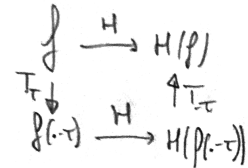 f H H(f)
T_τ T_-τ
f(·-τ) H H(f(·-τ))